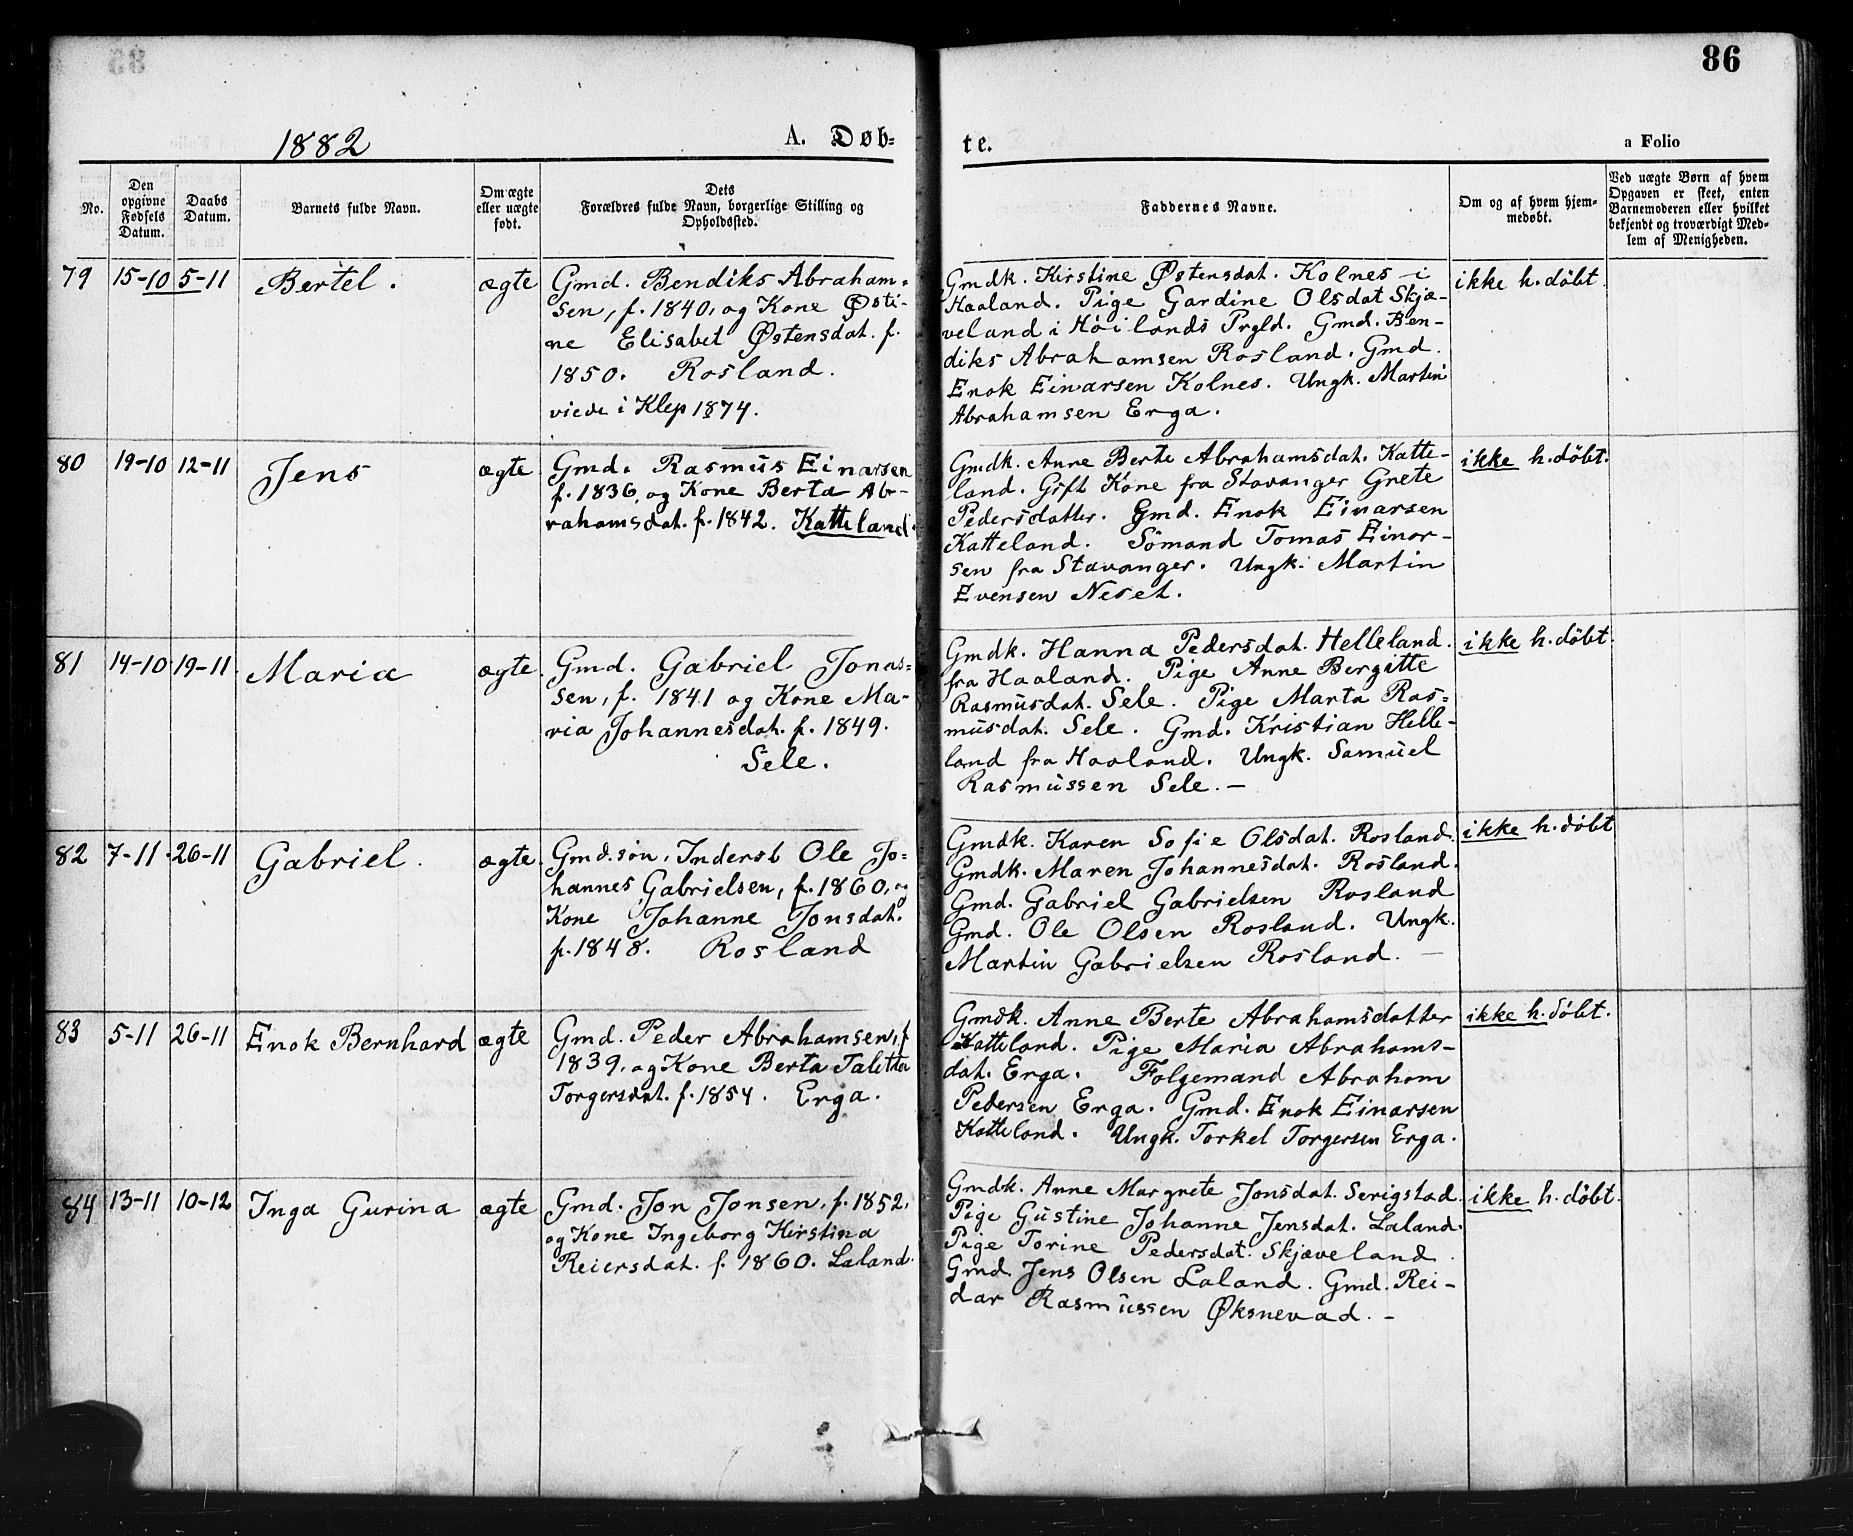 86
1882
A. Døb-
te.
a Folio
No.
Den
opgivne
Fødsels
Datum.
Daabs
Datum.
Barnets fulde Navn.
Om ægte
eller uægte
født.
Dets
Forældres fulde Navn, borgerlige Stilling og
Opholdssted.
Faddernes Navne.
Om og af hvem hjem-
medøbt.
Ved uægte Børn af hvem
Opgaven er skeet, enten
Barnemoderen eller hvilket
bekjendt og troværdigt Med-
lem af Menigheden.
79 15-10 5-11 Bertel. ægte
Gmd. Bendiks Abraham-
sen, f. 1840, og Kone Østi-
ne Elisabet Østensdat. f.
1850. Rosland.
viede i Klep 1874.
Gmdk. Kirstine Østensdat. Kolnes i
Haaland. Pige Gardine Olsdat Skjæ-
veland i Höilands Prgld. Gmd. Ben-
diks Abrahamsen Rosland. Gmd.
Enok Einarsen Kolnes. Ungk. Martin
Abrahamsen Erga.
ikke h. døbt
80 19-10 12-11 Jens ægte
Gmd. Rasmus Einarsen
f. 1836, og Kone Berta Ab-
rahamsdat. f. 1842. Katteland.
Gmdk. Anne Berte Abrahamsdat. Katte-
land. Gift Kone fra Stavanger Grete
Pedersdatter. Gmd. Enok Einarsen
Katteland. Sömand Tomas Einar-
sen fra Stavanger. Ungk. Martin
Evensen Neset.
ikke h. döbt.
81 14-10 19-11 Maria ægte
Gmd. Gabriel Jonas-
sen, f. 1841 og Kone Ma-
ria Johannesdat. f. 1849.
Sele.
Gmdk. Hanna Pedersdat. Helleland.
fra Haaland. Pige Anne Bergitte
Rasmusdat. Sele. Pige Marta Ras-
musdat. Sele. Gmd. Kristian Helle-
land fra Haaland. Ungk. Samuel
Rasmussen Sele. -
ikke h. döbt.
82 7-11 26-11 Gabriel. ægte.
Gmd.søn, Inderst Ole Jo-
hannes Gabrielsen, f. 1860, og
Kone Johanne Jonsdat.
f. 1848. Rosland
Gmdk. Karen Sofie Olsdat. Rosland.
Gmdk. Maren Johannesdat. Rosland.
Gmd. Gabriel Gabrielsen Rosland
Gmd. Ole Olsen Rosland. Ungk.
Martin Gabrielsen Rosland. -
ikke h. döbt
83 5-11 26-11 Enok Bernhard ægte
Gmd. Peder Abrahamsen, f.
1839, og Kone Berta Talitta
Torgersdat. f. 1854. Erga.
Gmdk. Anne Berte Abrahamsdatter
Katteland. Pige Maria Abrahams-
dat. Erga. Folgemand Abraham
Pedersen Erga. Gmd. Enok Einarsen
Katteland. Ungk. Torkel Torgersen Erga.
ikke h. döbt.
84 13-11 10-12 Inga Gurina ægte
Gmd. Jon Jonsen, f. 1852,
og Kone Ingeborg Kirstina
Reiersdat. f. 1860. Laland.
Gmdk. Anne Margrete Jonsdat. Serigstad.
Pige Gustine Johanne Jensdat. Laland.
Pige Torine Pedersdat. Skjæveland.
Gmd. Jens Olsen Laland. Gmd. Rei-
dar Rasmussen Øksnevad. -
ikke h. døbt.